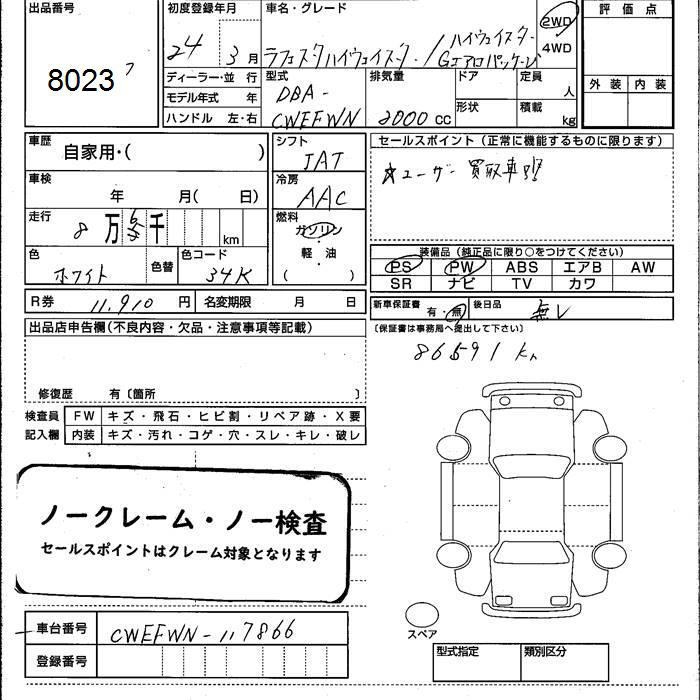 出品番号 初度登録年月 車名・グレード 評価点
8023 ｱ 24 3月 ラフェスタハイウェイスター/ハイウェイスター Gエアロパッケージ 2WD 4WD
ディーラー・並行 型式 排気量 ドア 定員 外装 内装
モデル年式 年 DBA- 人
ハンドル 左・右 CWEFWN 2000cc 形状 積載 kg
車歴 自家用・( ) シフト JAT セールスポイント(正常に機能するものに限ります)
☆ユーザー買取車
車検 年 月( 日) 冷房 AAC
走行 8万 6千 km 燃料 ガソリン
軽・油
( )
色 ホワイト 色替 色コード 34K
装備品(純正品に限り○をつけてください)
PS PW ABS エアB AW
SR ナビ TV カワ
R券 11,910円 名変期限 月 日
新車保証書 有・無 後日品 無し
(保証書は事務局へ提出して下さい)
出品店申告欄(不良内容・欠品・注意事項等記載)
86591km
修復歴 有〔箇所 〕
検査員 FW キズ・飛石・ヒビ割・リペア跡・X要
記入欄 内装 キズ・汚れ・コゲ・穴・スレ・キレ・破レ
ノークレーム・ノー検査
セールスポイントはクレーム対象となります
車台番号 CWEFWN-117866
登録番号
スペア
型式指定 類別区分